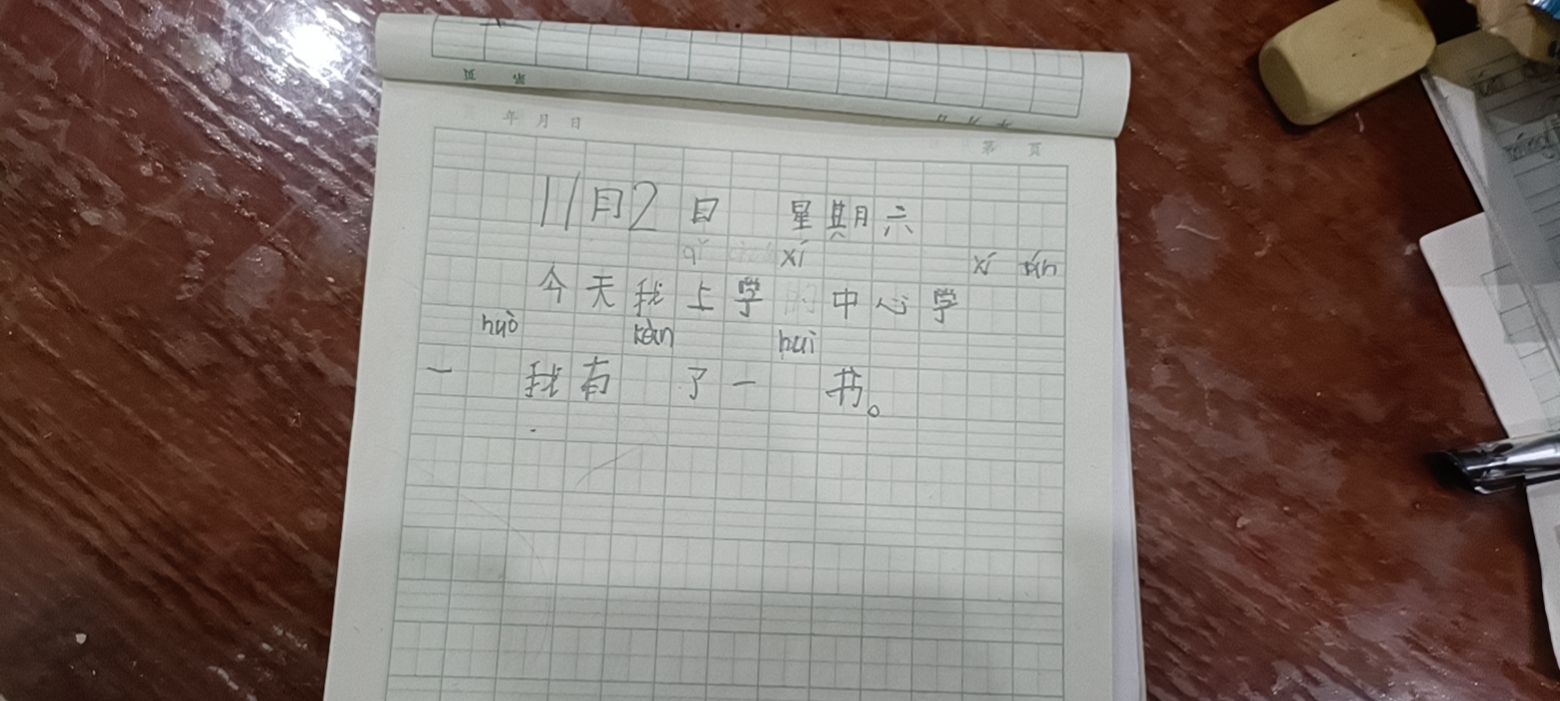 年 月 日
第 页
11月2日 星期六
xí xí
今天我上学中心学
huò kàn huì
一 我有 了一 书。